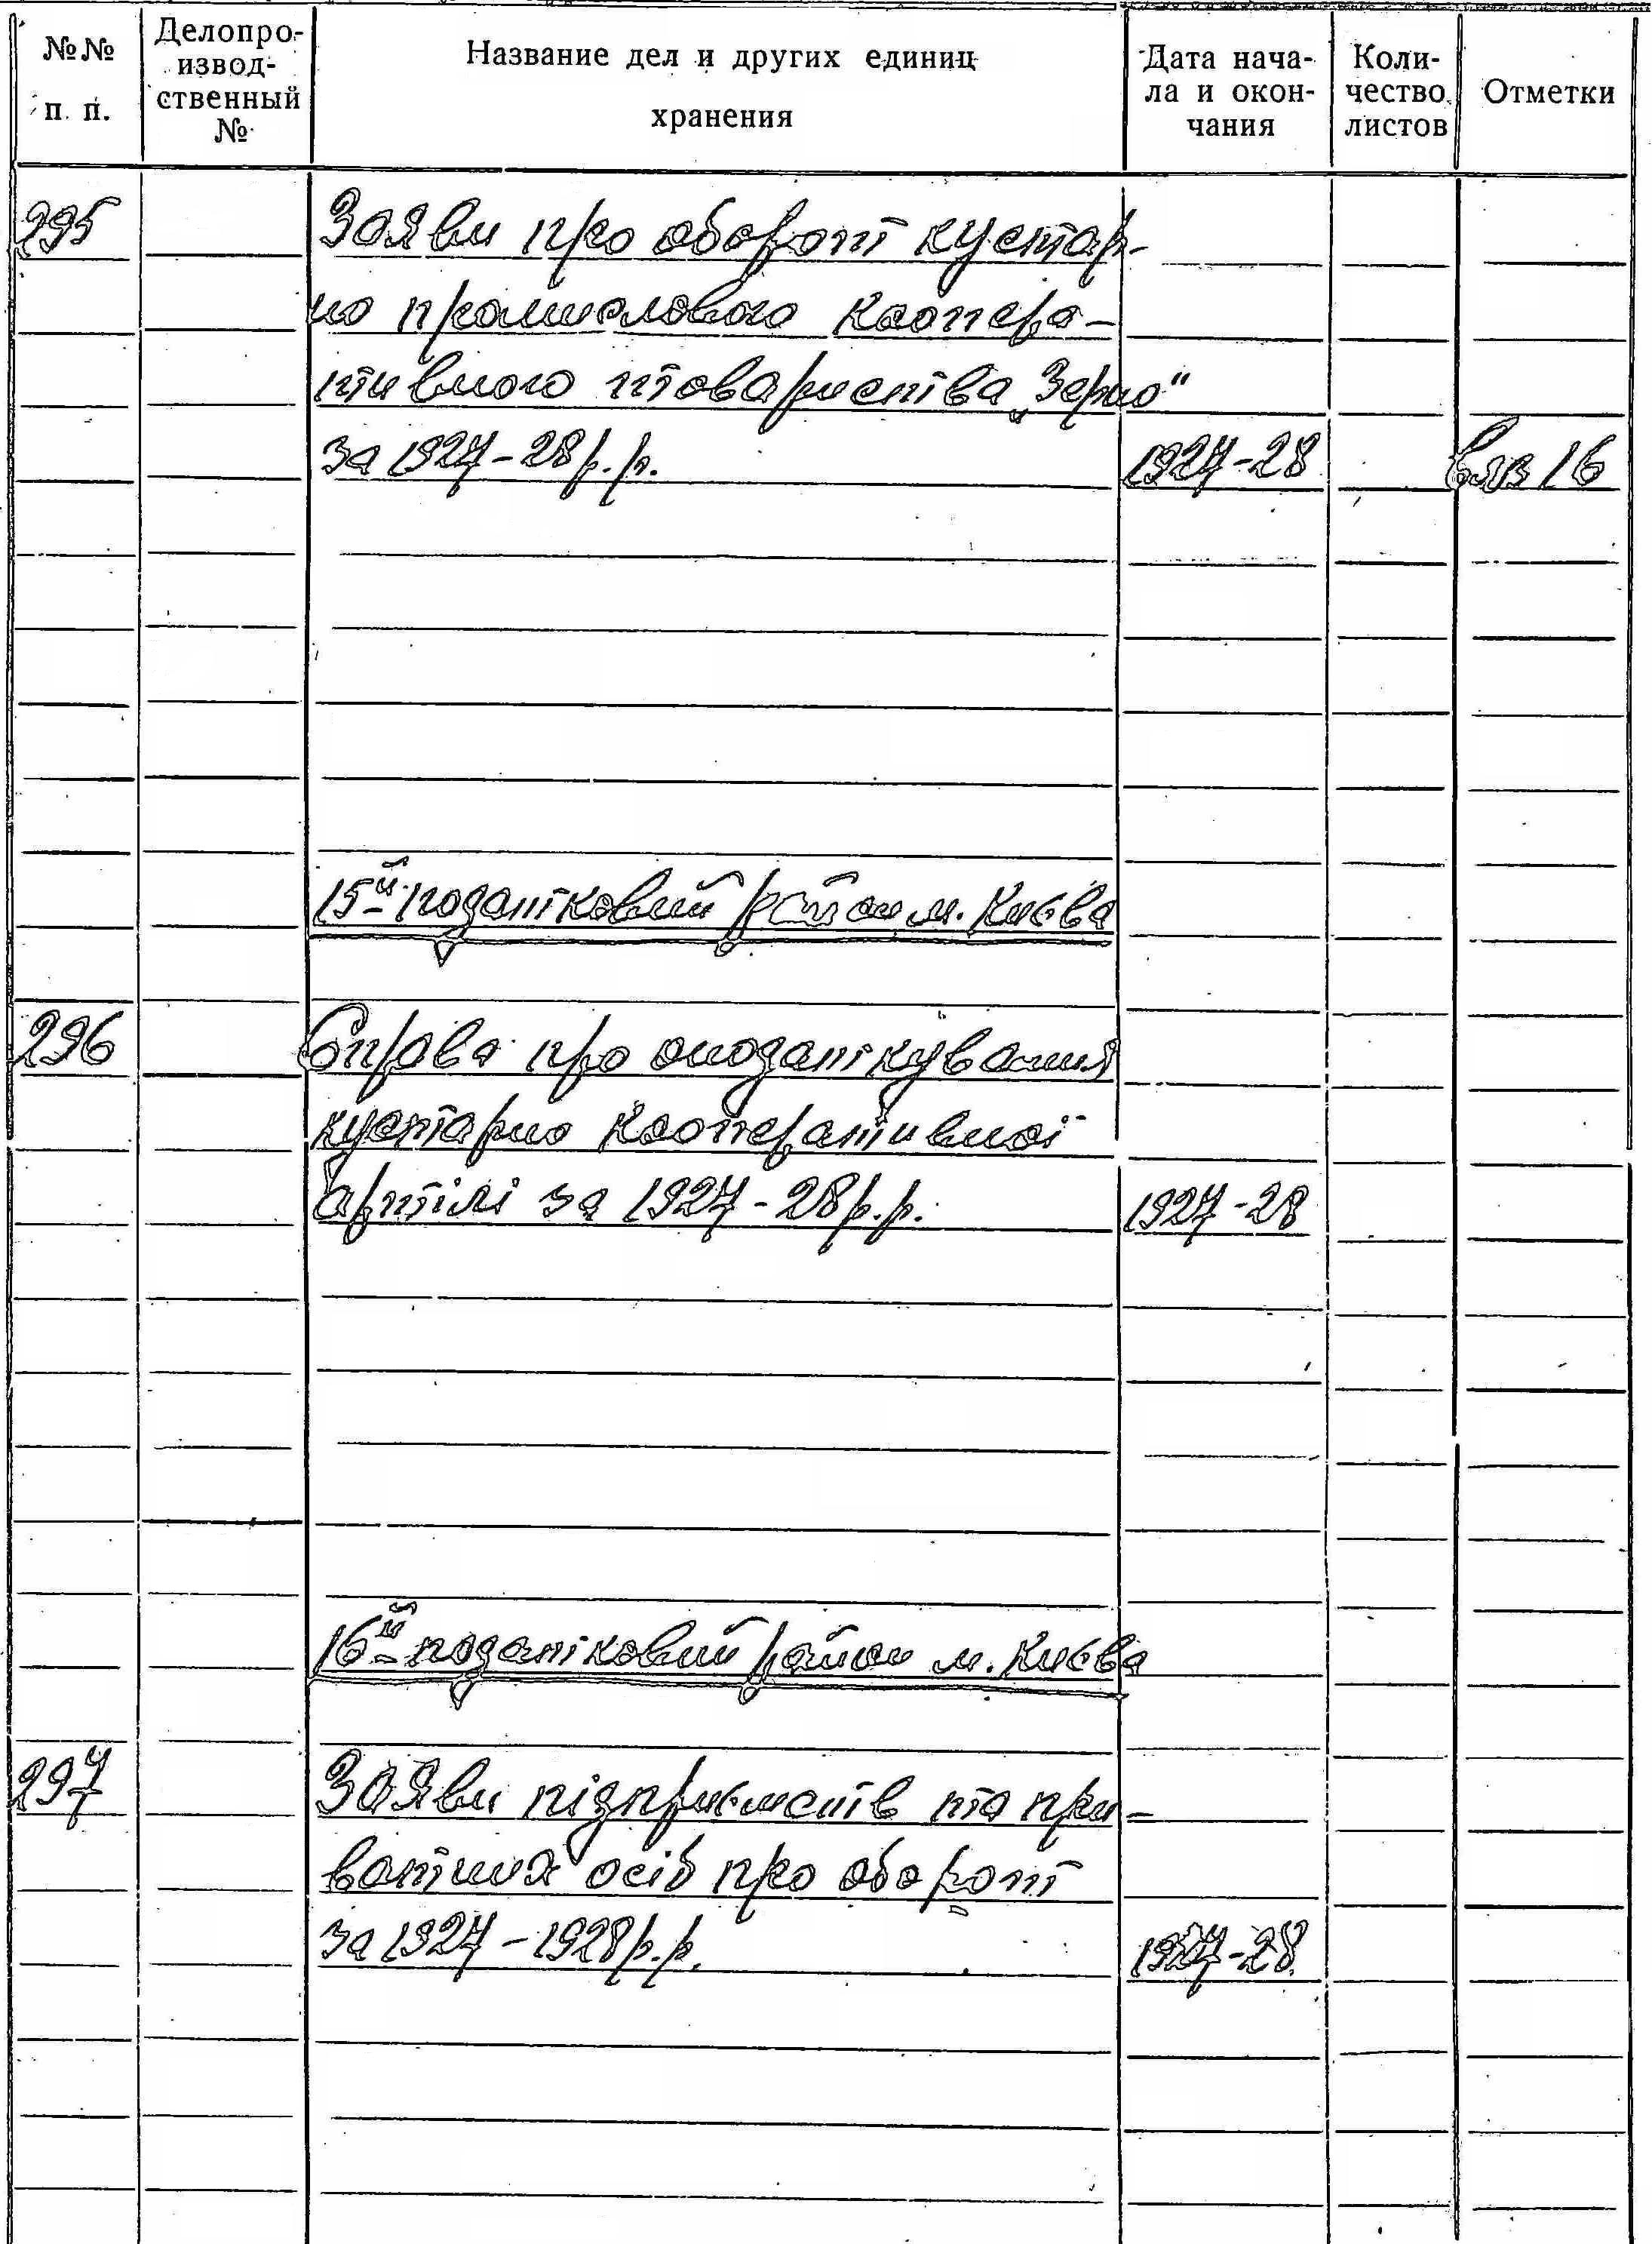 №№ п. п.
Делопро-
извод-
ственный
№
Название дел и других единиц
хранения
Дата нача-
ла и окон-
чания
Коли-
чество
листов
Отметки
295 Заяви про оборот кустар-
но промислового коопера-
тивного товариства „Зерно"
за 1927-28 р.р. 1927-28 вяз 16
15й податковий район м. Києва
296 Справа про оподаткування
кустарно кооперативної
артілі за 1927-28 р.р. 1927-28
16й податковий район м. Києва
297 Заяви підприємств та при-
ватних осіб про оборот
за 1927-1928 р.р. 1927-28